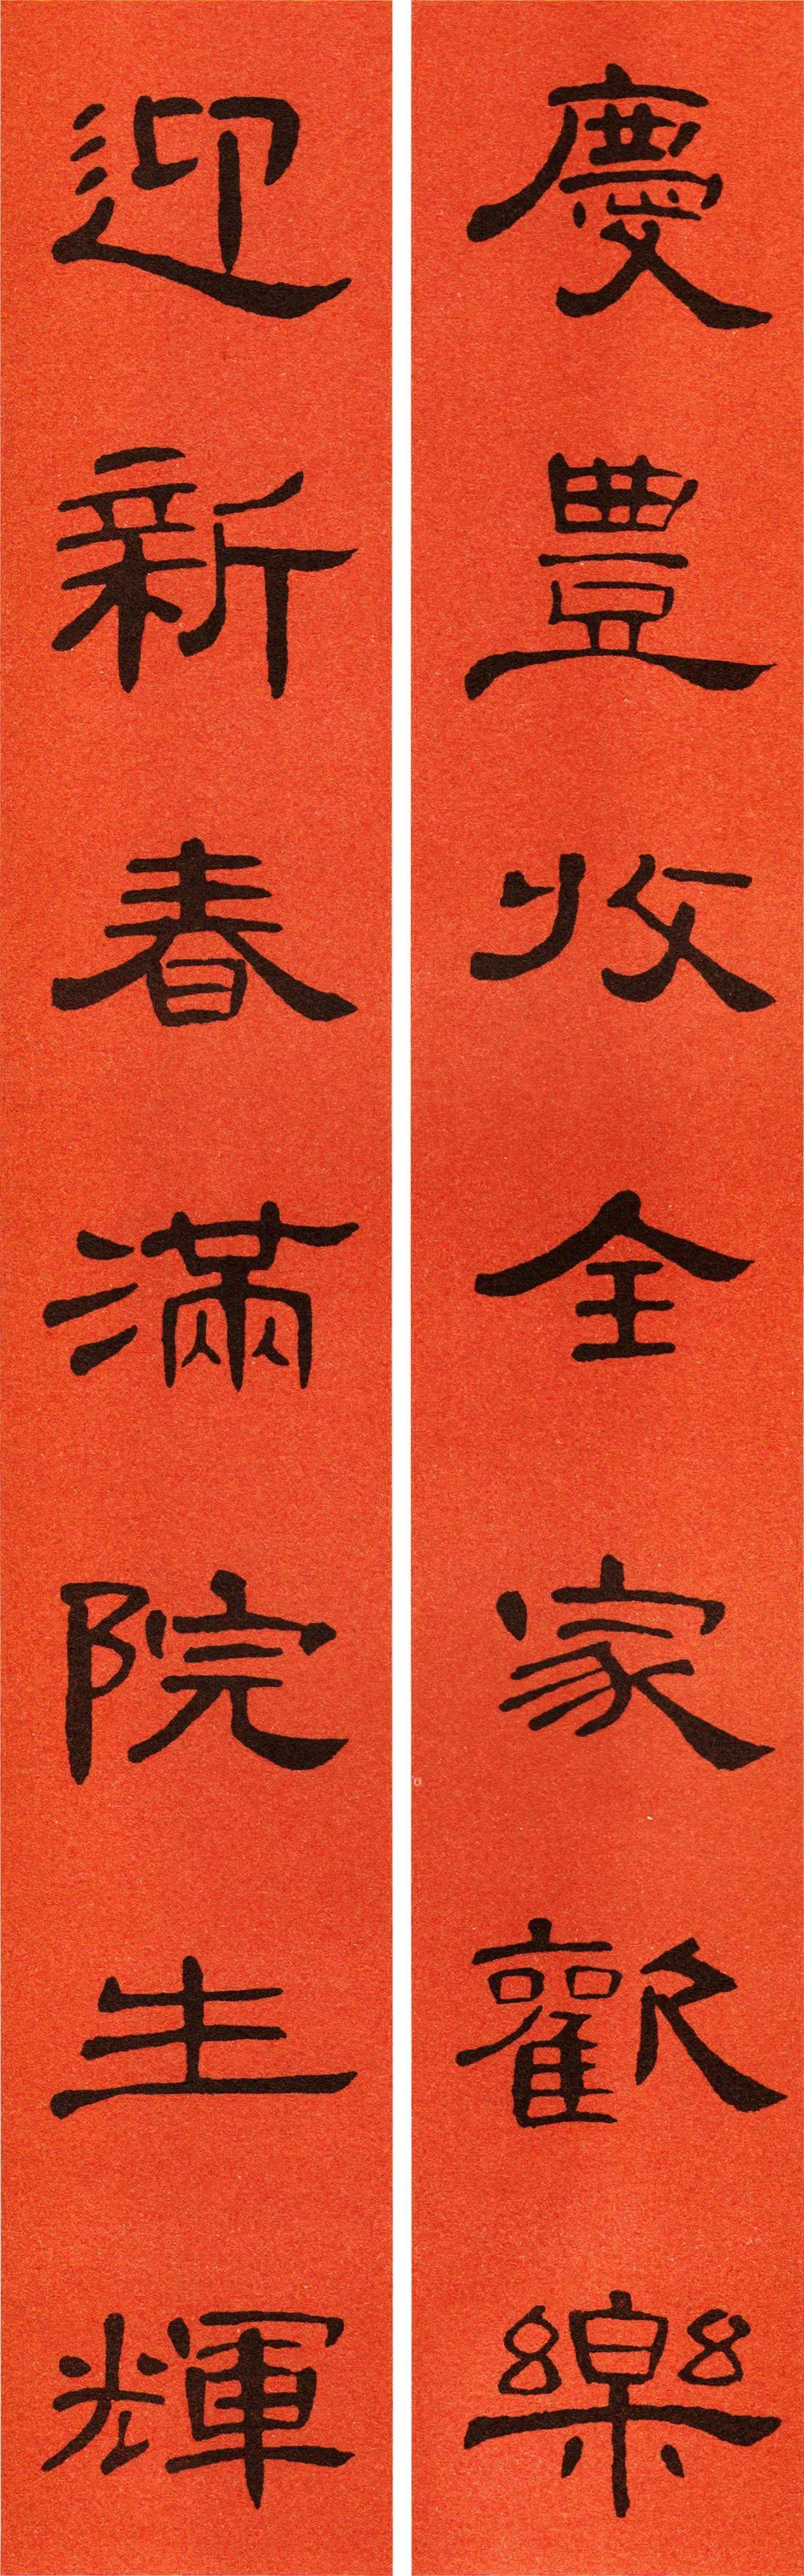 慶豊收全家歡樂
迎新春滿院生輝